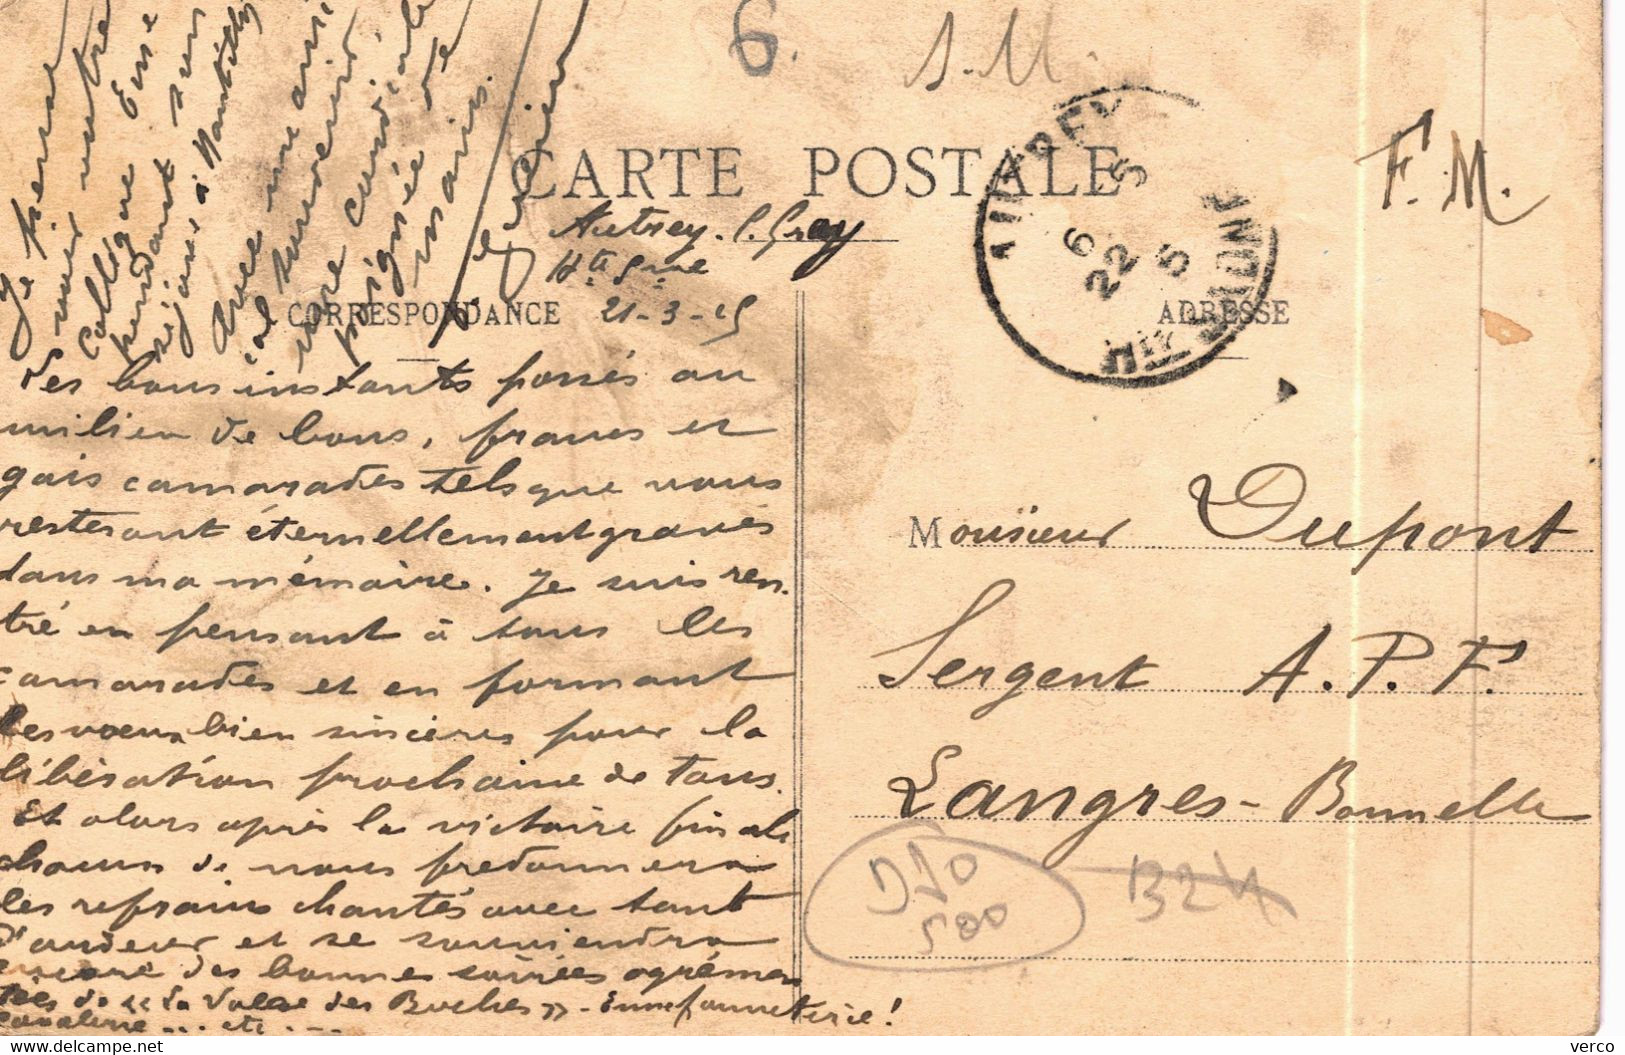 6.
S.M.
F.M.
CARTE POSTALE
Autrey-l.Gray
Hte Sne
21-3-15
CORRESPONDANCE
ADRESSE
AUTREY
6
22 5
HTE SAONE
Les bons instants passés au
milieu de bons, francs et
gais camarades tels que vous
resteront éternellement gravés
dans ma mémoire. Je suis ren-
tré en pensant à tous les
camarades et en formant
les voeux bien sincères pour la
libération prochaine de tous.
Et alors après la victoire finale
chacun de nous fredonnera
les refrains chantés avec tant
d'ardeur et se souviendra
encore des bonnes soirées agrémen
tées de « La Valse des Boches »
etc
Je pense
avoir votre
collègue
pendant
séjour à Nantilly
Avec une
vous
poignée de
mains.
Monsieur Dupont
Sergent A.P.F.
Langres-Bonnelle
D70
500
B24
Delcampe.net
verco